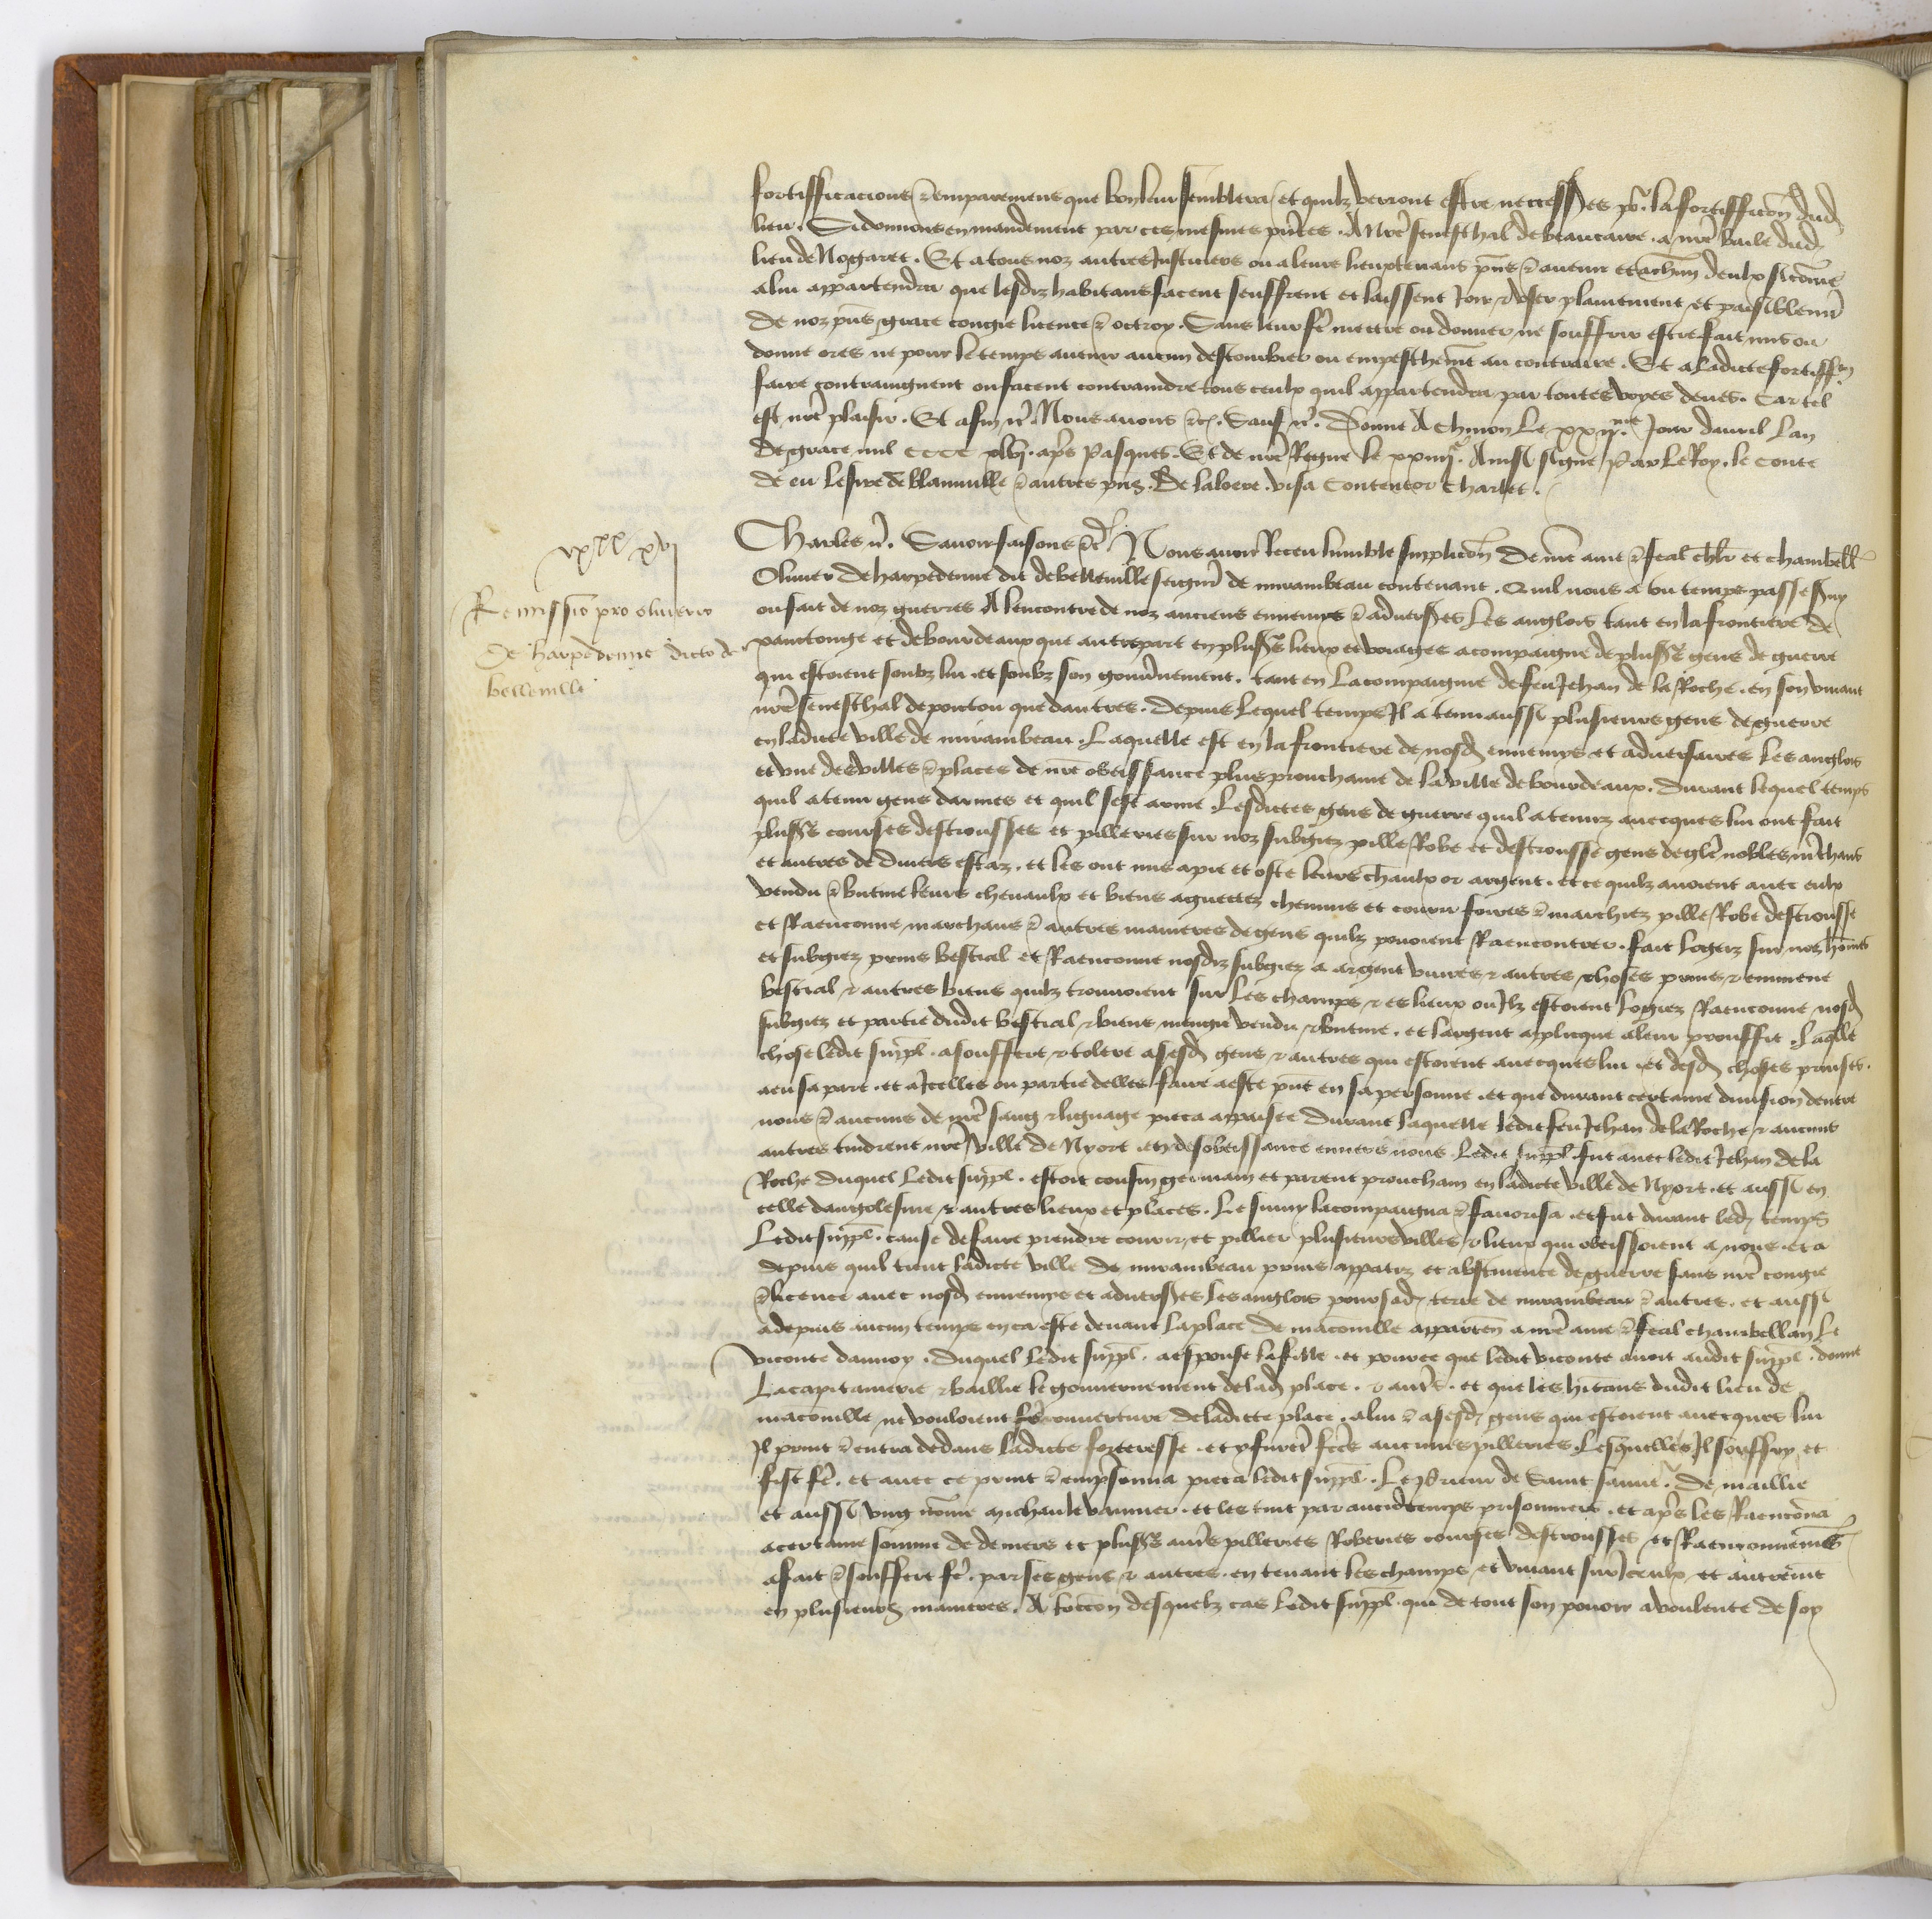 fortifficacions & emparemens que bon leur semblera et quilz verront estre necess[air]es po[ur] la fortifficon dud
lieu. Si donnons en mandement par ces mesmes pntes. A nre seneschal de beaucaire. a nre baile dud
lieu de Nogaret. Et a tous noz autres Justiciers ou a leurs lieuxtenans pns & avenir et a chun deulx si come
a lui appartendra que lesdiz habitans facent seuffrent et laissent Joir & user plainement et paisiblemt
de noz pns grace congie licence & octroy. Sans leur fe mettre ou donner ne souffrir estre fait mis ou
donne ores ne pour le temps avenir aucun destourbier ou empeschemt au contraire. Et a ladicte fortiffon
faire contraingnent ou facent contraindre tous ceulx quil appartendra par toutes voyes deues. Car tel
est nre plaisir. Et afin &c. Nous avons &c. Sauf &c. Donne A Chinon Le xxiime Jour davril Lan
de grace mil cccc xlvj. apres Pasques. Et de nre Regne le xxiiije. Ainsi signe Par Le Roy. le Conte
de eu Le sire de blainville & autres pns. De laloere. visa Contentor Charlet.
Charles &c. Savoir faisons &c Nous avoir Receu lumble supplicon de nre ame & feal chlr et chambellan
Olivier de harpedenne dit de belleville seignr de mirambeau contenant. Quil nous a ou temps passe servy
ou fait de noz guerres A lencontre de noz anciens ennemys & adversres Les anglois tant en la frontiere de
xantonge et de bourdeaux que autrepart en plusrs lieux et voiages acompaigne de plusrs gens de guerre
qui estoient soubz lui et soubz son gouvnement. tant en La compaignie de feu Jehan de la Roche. en son vivant
nre seneschal de poictou que dautres. Depuis Lequel temps Jl a tenu aussi plusieurs gens de guerre
en ladicte ville de mirambeau. Laquelle est en la frontiere de nosd ennemys et adversaires Les anglois
et une des villes & places de nre obeissance plus prouchaine de la ville de bourdeaux. Durant lequel temps
quil a tenu gens darmes et quil sest arme. Lesdictes gens de guerre quil a tenuz avecques lui ont fait
plusrs courses destrousses et pilleries sur noz subgiez pille Robe et destrousse gens deglise nobles mrchans
et autres de divers estaz. et les ont mis a pie et oste leurs chevaulx or argent. et ce quilz avoient avec eulx
vendu & butine leurs chevaulx et biens aguettez chemins et couru foires & marchiez pille Robe destrousse
et Raenconne marchans & autres manieres de gens quilz povoient Raencontrer. fait Logiz sur noz homes
et subgiez prins bestial et Raenconne nosdiz subgiez a argent vivres & autres choses prins & emmene
bestial & autres biens quilz trouvoient sur Les champs & es lieux ou Jlz estoient Logiez Raenconne nosd
subgiez et partie dudit bestial & biens mengie vendu & butine. et largent applicque a leur prouffit. Laqlle
chose Ledit suppl. a souffert & tolere a sesd gens & autres qui estoient avecques lui. et desd choses prinses.
a eu sa part. et a Jcelles ou partie delles faire a este pnt en sa personne. et que durant certaine division dentre
nous & aucuns de nre sang & lignage pieca appaisee durant laquelle Ledit feu Jehan de la Roche & aucuns
autres tindrent nre ville de Nyort en desobeissance envers nous Ledit suppl. fut avec ledit Jehan de la
Roche duquel Ledit suppl. estoit cousin germain et parent prouchain en ladicte ville de Nyort. et aussi en
celle dangolesme & autres lieux et places. Le suivy lacompaigna & favorisa. et fut durant led temps
Ledit suppl. cause de faire prendre courir et pillier plusieurs villes & lieux qui obeissoient a nous. et a
depuis quil tient ladicte ville de mirambeau prins appatiz et abstinence de guerre sans nre congie
& licence avec nosd ennemys et adversres Les anglois pour sad terre de mirambeau & autres. et aussi
a depuis aucun temps en ca este devant la place de maconville apparten a nre ame & feal chambellan Le
viconte daunoy. duquel Ledit suppl. a espouse la fille. et pource que ledit viconte avoit audit suppl. donne
La capitainerie & baillie le gouvernement de lad place. & autrs. et que les hitans dudit lieu de
maconville ne vouloient fe ouverture de ladicte place. a lui & a sesd gens qui estoient avecques lui
Jl print & entra dedans ladicte forteresse. et y furent fctes aucunes pilleries. Lesquelles Jl souffry et
fist fe. et avec ce print & emprisonna pieca ledit suppl. Le prieur de Saint sauvr. de maillie
et aussi ung nome michau le vannier. et les tint par aucū temps prisonniers. et apres les Raencona
a certaine somme de deniers et plusrs autrs pilleries Roberies courses destrousses et Raenconnemens
a fait & souffert fe. par ses gens & autres. en tenant les champs et vivant sur Jceulx et autremt
en plusieurs manieres. A loccon desquelz cas Ledit suppl. qui de tout son povoir a voulente de soy
Remissio pro oliverio
de harpedenne dicto de
belleville